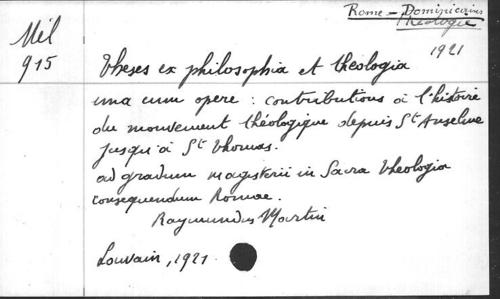 Rome - Dominicains
Théologie
Mil
915
1921
Theses ex philosophia et theologia
una cum opere : contributions à l'histoire
du mouvement théologique depuis St Anselme
jusqu'à St Thomas.
ad gradum magisterii in Sacra Theologia
consequendum Romae.
Raymundus Martin
Louvain, 1921.